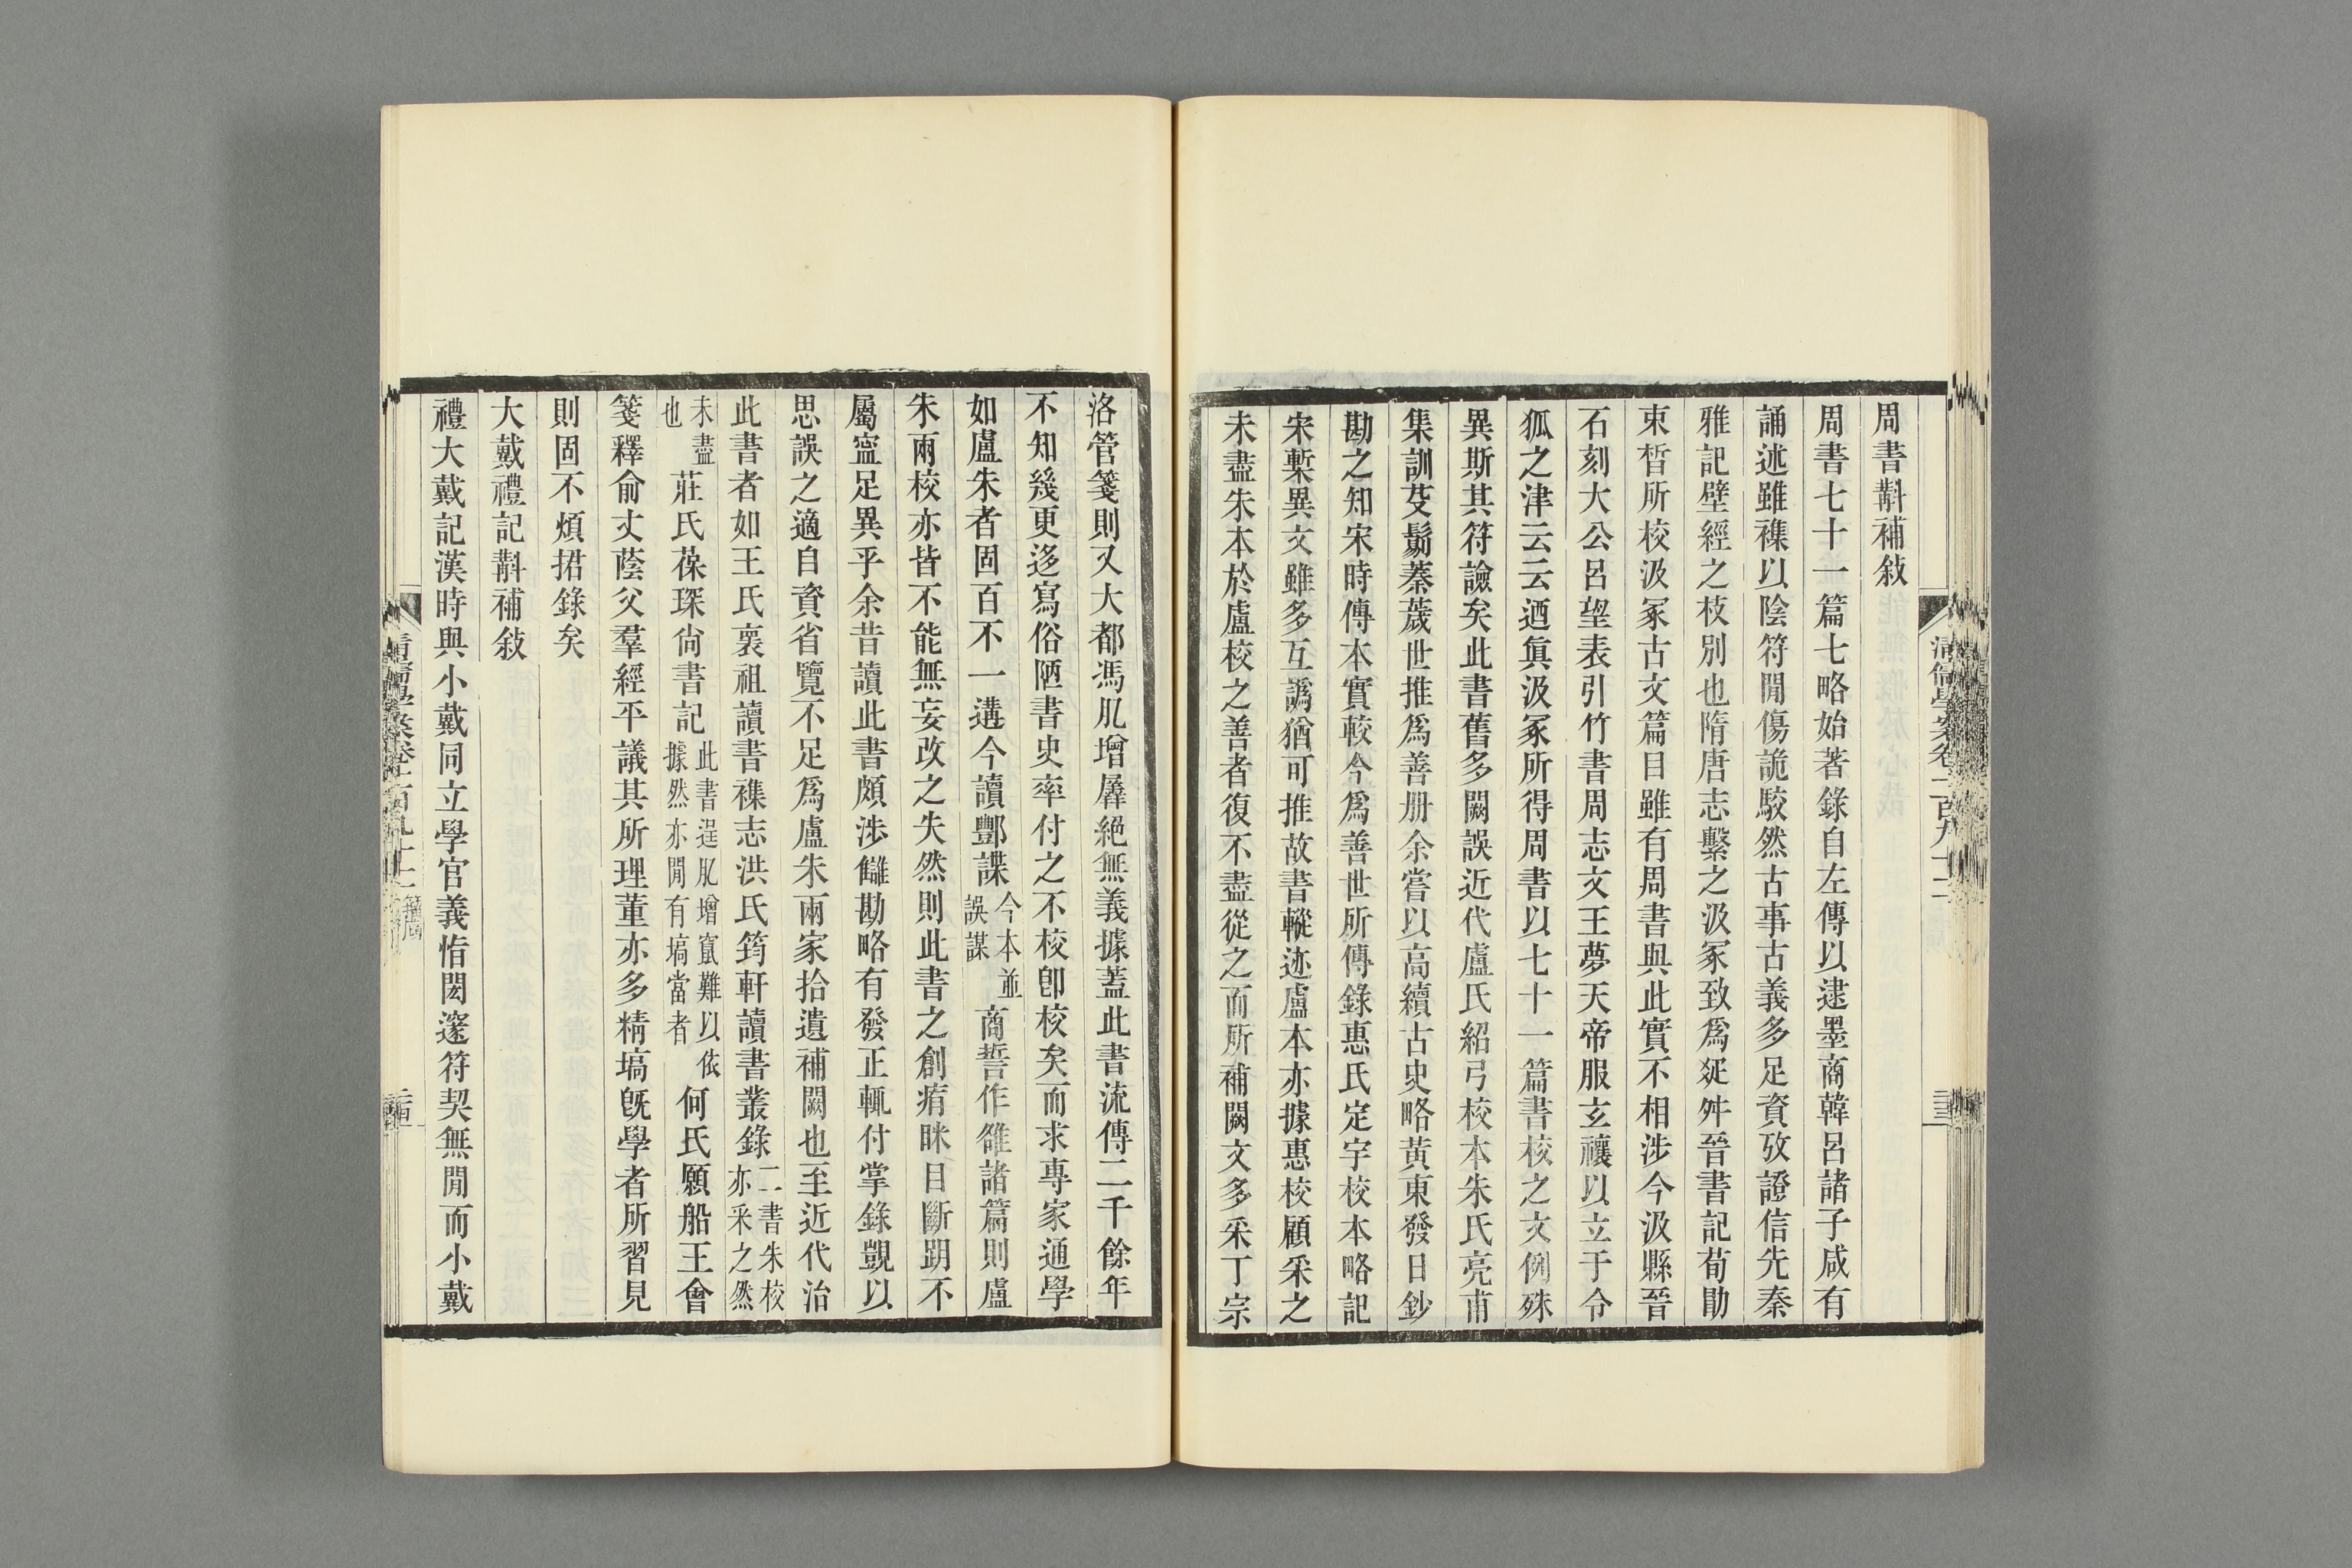 周書斠補敍
周書七十一篇七略始著錄自左傳以逮墨商韓呂諸子咸有
誦述雖襍以陰符閒傷詭駮然古事古義多足資攷證信先秦
雅記壁經之枝別也隋唐志繫之汲冢致爲疪舛晉書記荀勖
束晳所校汲冢古文篇目雖有周書與此實不相涉今汲縣晉
石刻大公呂望表引竹書周志文王夢天帝服玄禳以立于令
狐之津云云迺眞汲冢所得周書以七十一篇書校之文例殊
異斯其符譣矣此書舊多闕誤近代盧氏紹弓校本朱氏亮甫
集訓芟鬀蓁薉世推爲善册余嘗以高續古史略黃東發日鈔
勘之知宋時傳本實較今爲善世所傳錄惠氏定宇校本略記
宋槧異文雖多互譌猶可推故書轍迹盧本亦據惠校顧采之
未盡朱本於盧校之善者復不盡從之而所補闕文多采丁宗
洛管箋則又大都馮肊增羼絕無義據蓋此書流傳二千餘年
不知幾更迻寫俗陋書史率付之不校卽校矣而求專家通學
如盧朱者固百不一遘今讀酆諜今本並誤謀商誓作雒諸篇則盧
朱兩校亦皆不能無妄改之失然則此書之創痏眯目斷跀不
屬寍足異乎余昔讀此書頗涉讎勘略有發正輒付掌錄覬以
思誤之適自資省覽不足爲盧朱兩家拾遺補闕也至近代治
此書者如王氏褱祖讀書襍志洪氏筠軒讀書叢錄二書朱校亦采之然
未盡也莊氏葆琛尙書記此書逞肊增竄難以依據然亦閒有塙當者何氏願船王會
箋釋俞丈蔭父羣經平議其所理董亦多精塙旣學者所習見
則固不煩捃錄矣
大戴禮記斠補敍
禮大戴記漢時與小戴同立學官義恉閎邃符契無閒而小戴